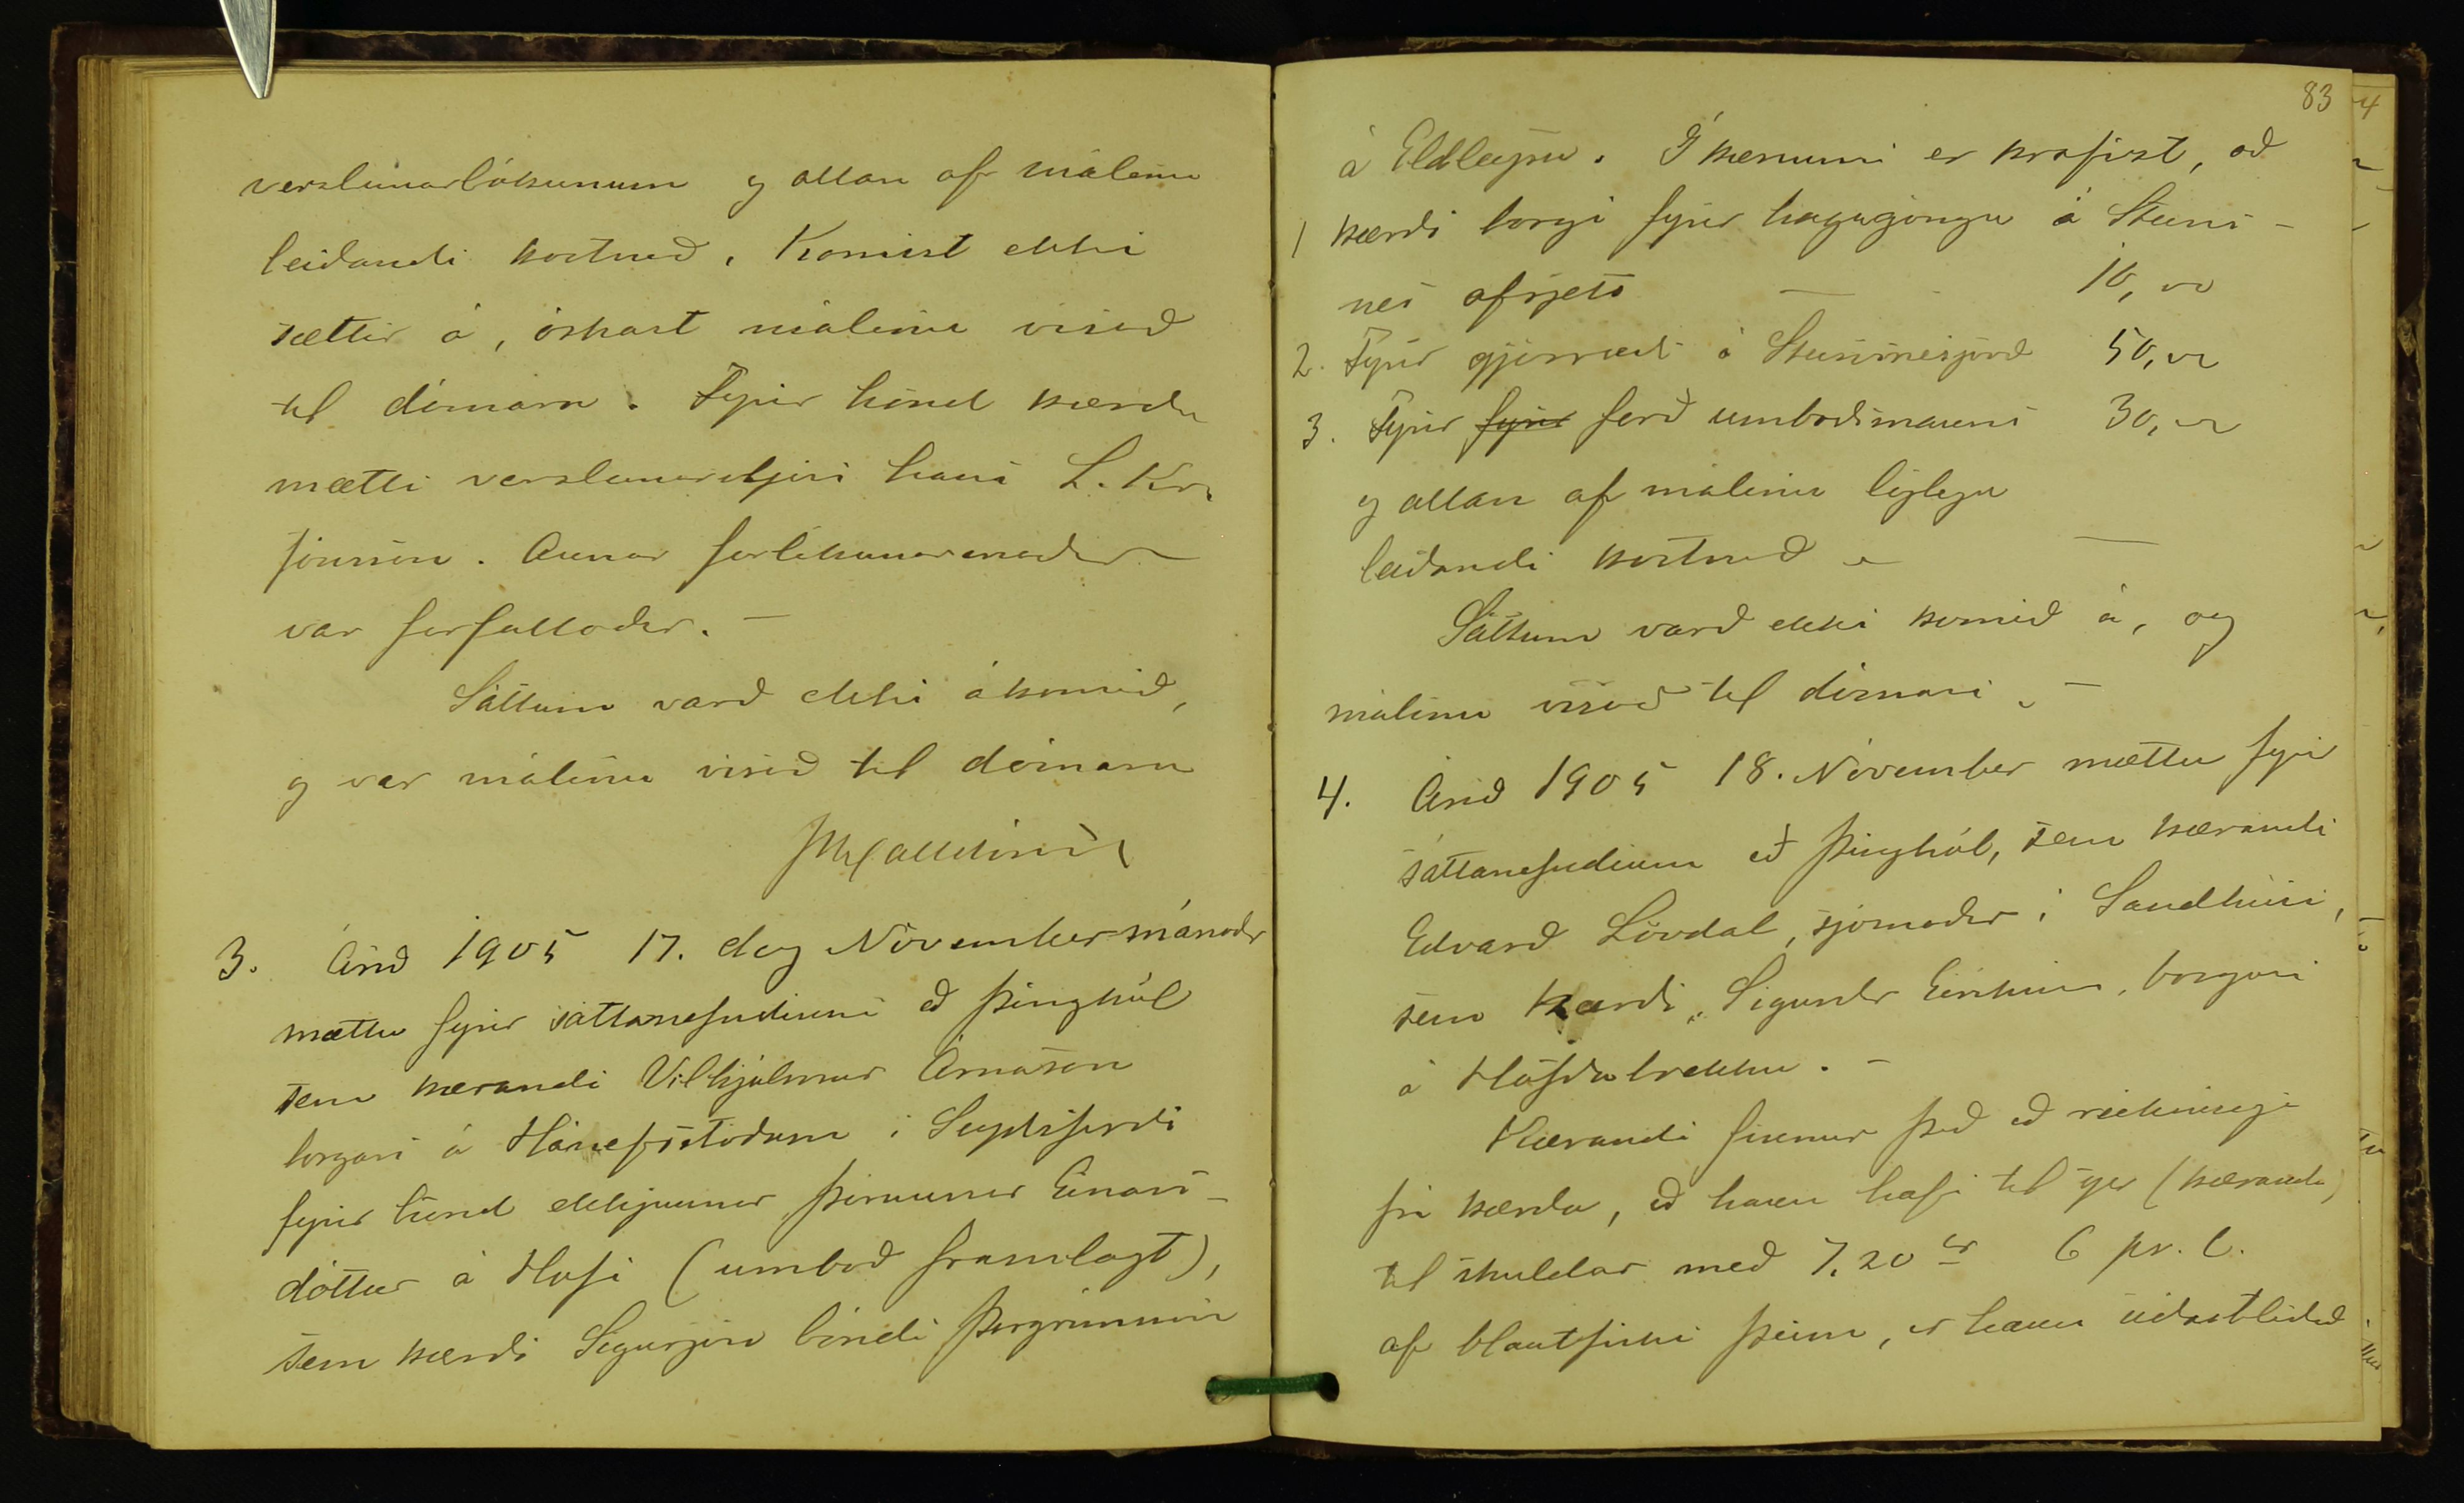 verslunarbókunum og allan af málinu
leiðandi kostnað. Komist ekki
sættir á, óskast málinu vísað
til dómara. Fyrir hönd kærða
mætti verslunarstjóri hans L. Kr.
Jónsson. Annar forlikunarmaður
var forfallaður. –
Sáttum varð ekki ákomið,
og var málinu vísað til dómara
3. Árið 1905 17. dag Novembermánaðr
mættu fyrir sáttanefndinni að Þinghól
sem kærandi Vilhjálmur Árnason
borgari á Hánefsstöðum í Seyðisfirði
fyrir hönd ekkjunnar Þórunnar Einars-
dóttur á Hofi (umboð framlagt),
sem kærði Sigurjón bóndi Þorgrímsson
83
á Eldleysu. Í kærunni er krafist, að
1 kærði borgi fyrir hagagöngu á Steins-
nes afrjett — 10,00
2. Fyrir gjörræði á Steinsnesjörð 50,00
3. Fyrir fyrir ferð umboðsmanns 30,00
og allan af málinu löglega
leiðandi kostnað —
Sáttum varð ekki komið á, og
málinu vísað til dómara. –
4. Árið 1905 18. November mættu fyrir
sáttanefndinni að Þinghól, sem kærandi
Edvarð Lövdal, sjómaður í Sandhúsi,
sem kærði, Sigurðr Eiríksson, borgari
á Höfðabrekku. –
Kærandi finnur það að reikningi
frá kærða, að hann hafi til sín (kæranda)
til skuldar með 7,20 kr 6 pr. C.
af blautfiski þeim, er hann síðastliðið